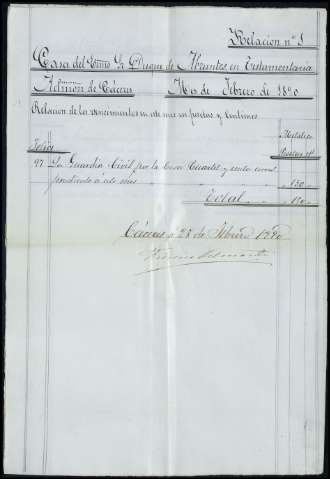 Relacion nº 1
Casa del Exmo Sr Duque de Abrantes en Testamentaria
Admon de Cáceres Mes de Febrero de 1890
Relacion de los vencimientos en este mes en pesetas y céntimos
Metalico
Folios Pesetas
97 La Guardia Civil por la Casa Cuartel y renta corres
pondiente á este mes 130
Total 130
Cáceres 28 de Febrero 1890